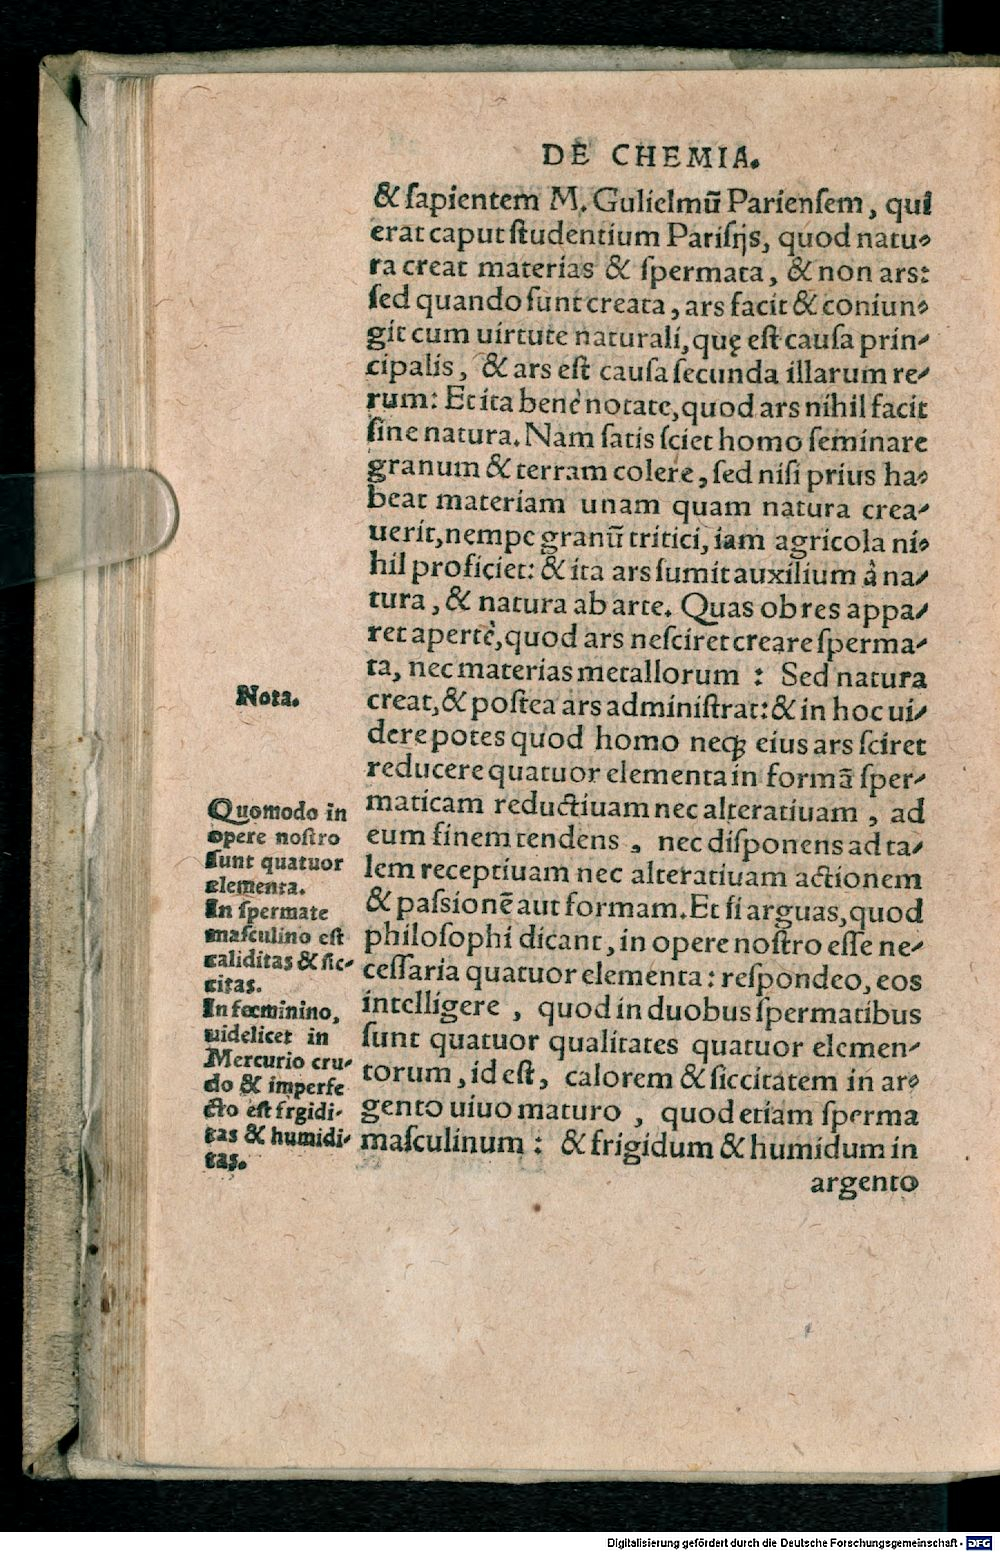 DE CHEMIA.
& ſapientem M. Gulielmū Parienſem, qui
erat caput ſtudentium Pariſijs, quod natu-
ra creat materias & ſpermata, & non ars:
ſed quando ſunt creata, ars facit & coniun-
git cum uirtute naturali, quę eſt cauſa prin-
cipalis, & ars eſt cauſa ſecunda illarum re-
rum: Et ita benè notate, quod ars nihil facit
ſine natura. Nam ſatis ſciet homo ſeminare
granum & terram colere, ſed niſi prius ha-
beat materiam unam quam natura crea-
uerit, nempe granū tritici, iam agricola ni-
hil proficiet: & ita ars ſumit auxilium à na-
tura, & natura ab arte. Quas ob res appa-
ret apertè, quod ars neſciret creare ſperma-
ta, nec materias metallorum : Sed natura
creat, & poſtea ars adminiſtrat: & in hoc ui-
dere potes quod homo neqꝫ eius ars ſciret
reducere quatuor elementa in formā ſper-
maticam reductiuam nec alteratiuam, ad
eum finem tendens, nec diſponens ad ta-
lem receptiuam nec alteratiuam actionem
& paſsionē aut formam. Et ſi arguas, quod
philoſophi dicant, in opere noſtro eſſe ne-
ceſſaria quatuor elementa: reſpondeo, eos
intelligere, quod in duobus ſpermatibus
ſunt quatuor qualitates quatuor elemen-
torum, id eſt, calorem & ſiccitatem in ar-
gento uiuo maturo, quod etiam ſperma
maſculinum : & frigidum & humidum in
argento
Nota.
Quomodo in
opere noſtro
ſunt quatuor
elementa.
In ſpermate
maſculino eſt
caliditas & ſic-
citas.
In fœminino,
uidelicet in
Mercurio cru-
do & imperfe
cto eſt frgidi-
tas & humidi-
tas.
Digitalisierung gefördert durch die Deutsche Forschungsgemeinschaft - DFG